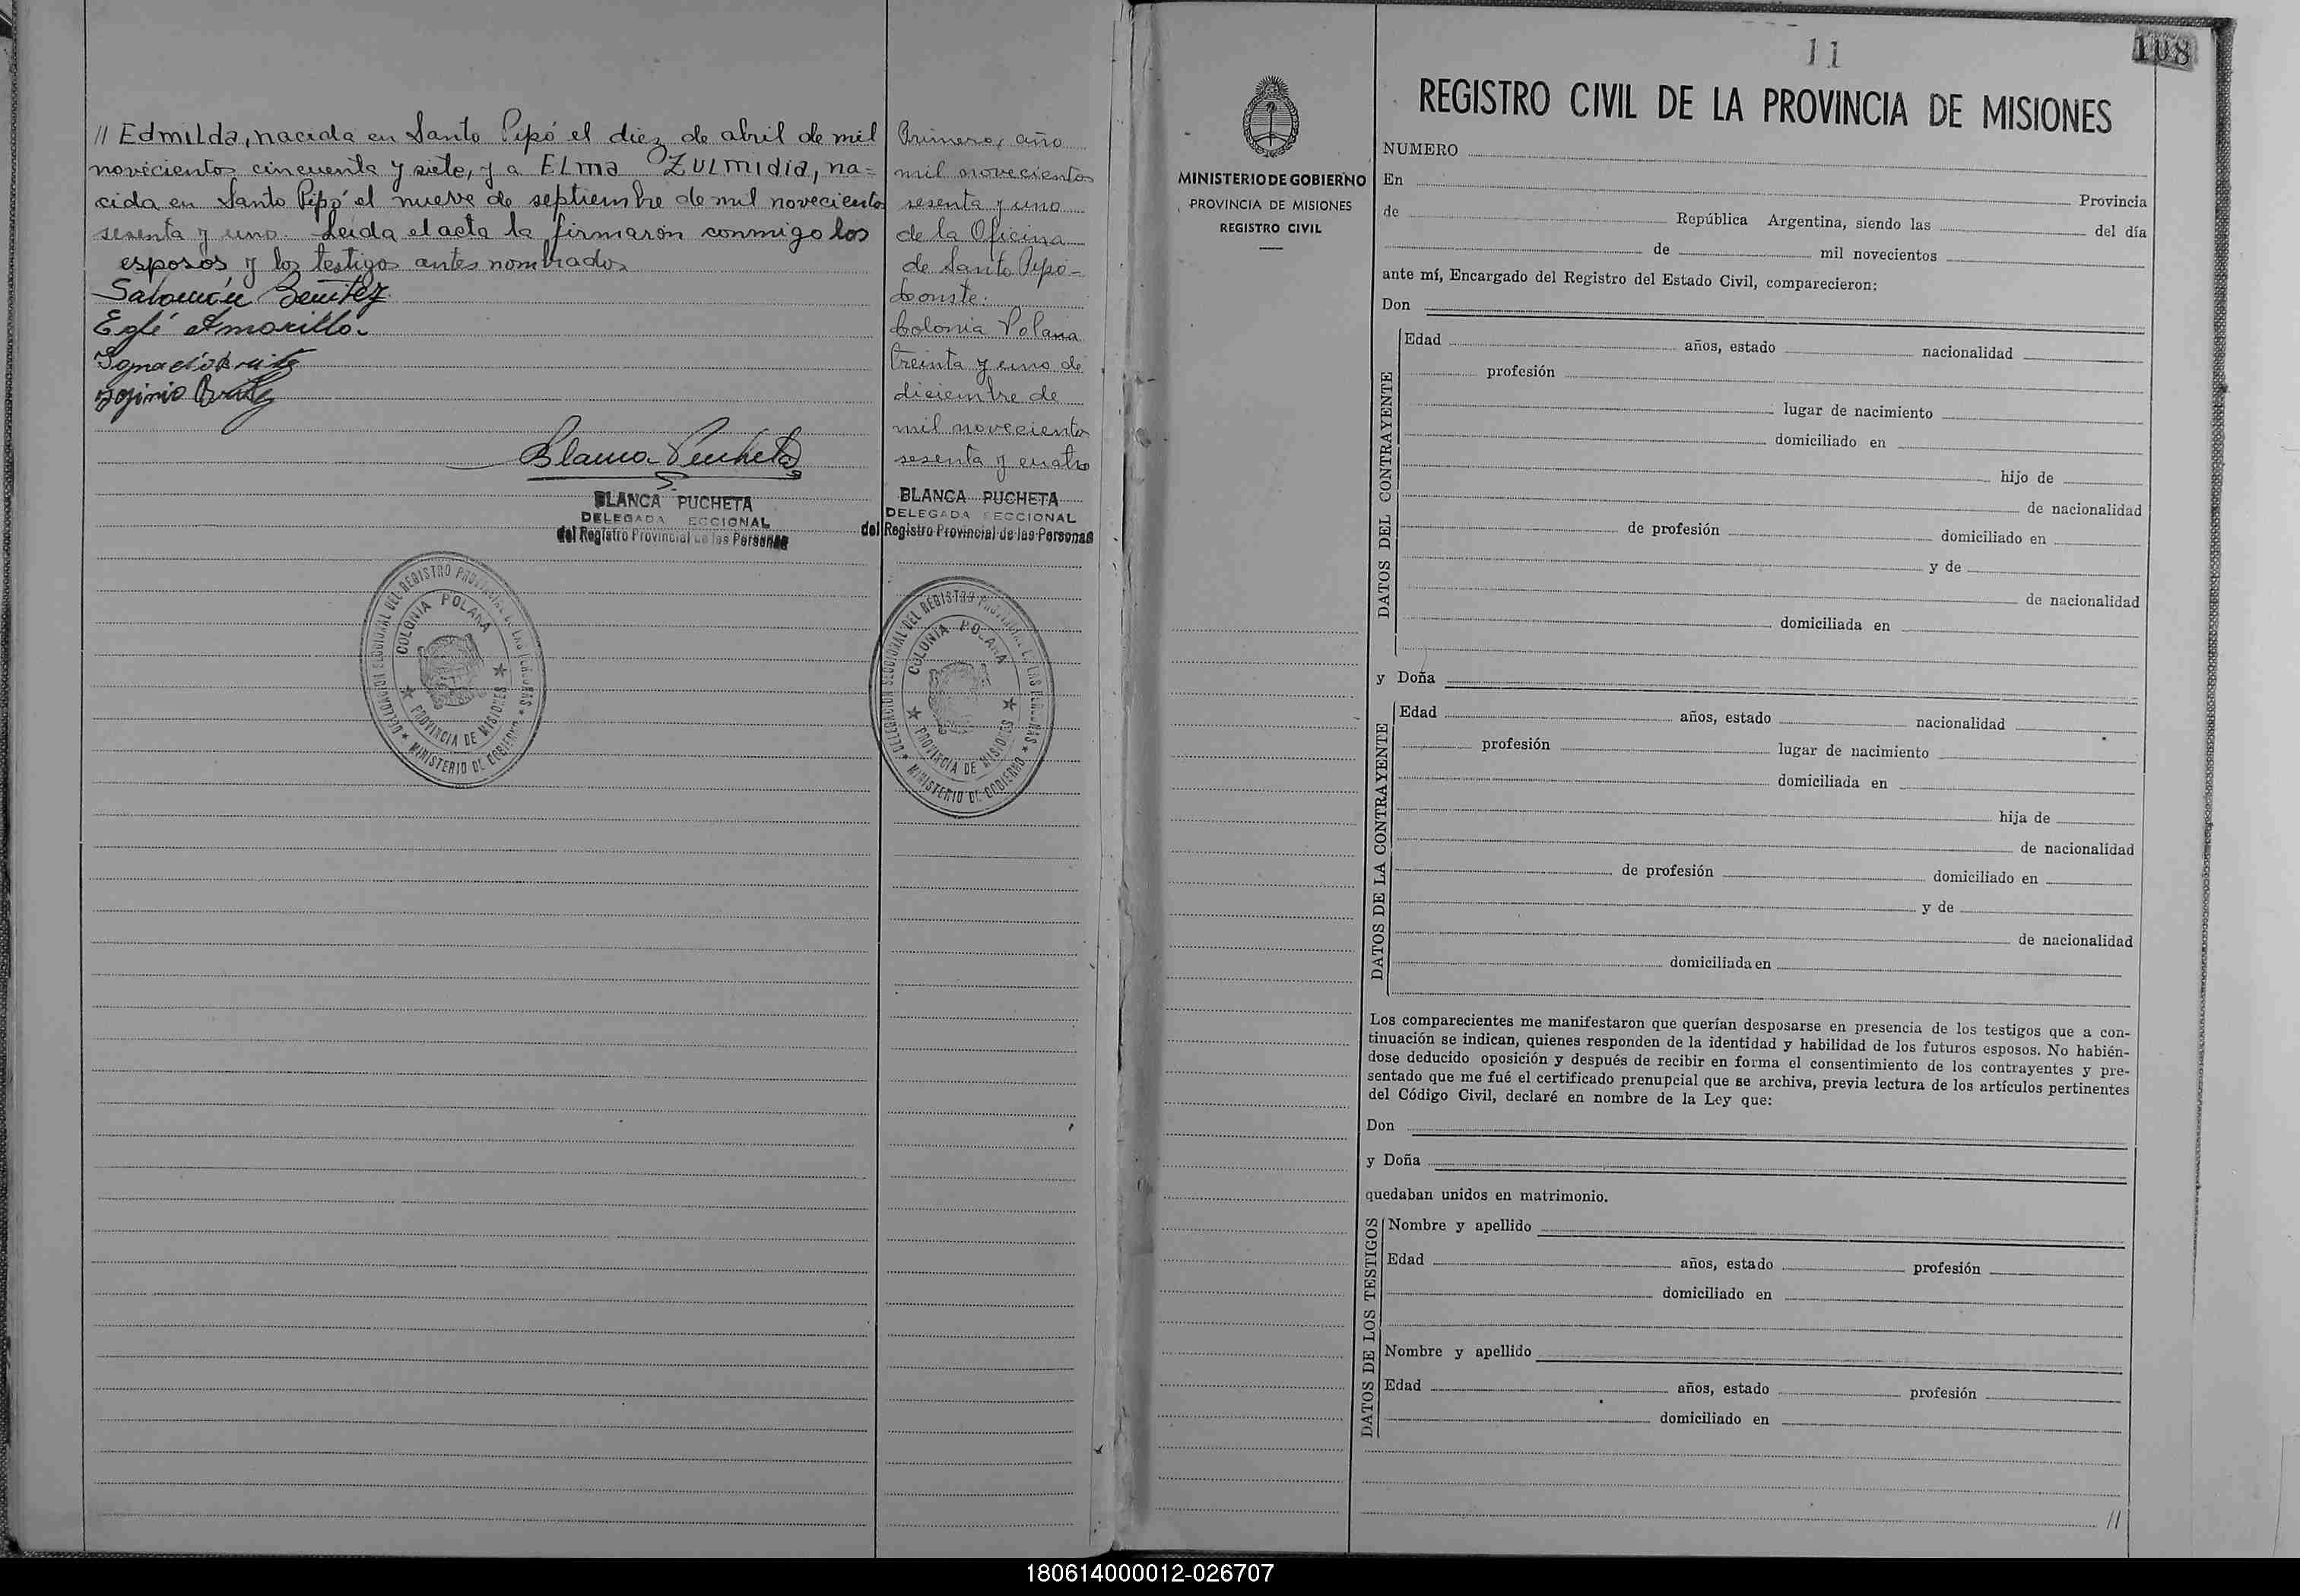 // Edmilda, nacida en Santo Pipó el diez de abril de mil
novecientos cincuenta y siete, y a Elma Zulmidia, na=
cida en Santo Pipó el nueve de septiembre de mil novecientos
sesenta y uno. Leida el acta la firmaron conmigo los
esposos y los testigos antes nombrados
Salomón Benítez
Eglé Amarillo.
Ignacio
Blanca Pucheta
BLANCA PUCHETA
DELEGADA SECCIONAL
del Registro Provincial de las Personas
DELEGACION SECCIONAL DEL REGISTRO PROVINCIAL DE LAS PERSONAS
COLONIA POLANA
PROVINCIA DE MISIONES
MINISTERIO DE GOBIERNO
Primero, año
mil novecientos
sesenta y uno
de la Oficina
de Santo Pipó-
Conste.
Colonia Polana
treinta y uno de
diciembre de
mil novecientos
sesenta y cuatro
BLANCA PUCHETA
DELEGADA SECCIONAL
del Registro Provincial de las Personas
DELEGACION SECCIONAL DEL REGISTRO PROVINCIAL DE LAS PERSONAS
COLONIA POLANA
PROVINCIA DE MISIONES
MINISTERIO DE GOBIERNO
11
108
MINISTERIO DE GOBIERNO
PROVINCIA DE MISIONES
REGISTRO CIVIL
REGISTRO CIVIL DE LA PROVINCIA DE MISIONES
NUMERO
En Provincia
de República Argentina, siendo las del día
de mil novecientos
ante mí, Encargado del Registro del Estado Civil, comparecieron:
Don
DATOS DEL CONTRAYENTE
Edad años, estado nacionalidad
profesión
lugar de nacimiento
domiciliado en
hijo de
de nacionalidad
de profesión domiciliado en
y de
de nacionalidad
domiciliada en
y Doña
DATOS DE LA CONTRAYENTE
Edad años, estado nacionalidad
profesión lugar de nacimiento
domiciliada en
hija de
de nacionalidad
de profesión domiciliado en
y de
de nacionalidad
domiciliada en
Los comparecientes me manifestaron que querían desposarse en presencia de los testigos que a con-
tinuación se indican, quienes responden de la identidad y habilidad de los futuros esposos. No habién-
dose deducido oposición y después de recibir en forma el consentimiento de los contrayentes y pre-
sentado que me fué el certificado prenupcial que se archiva, previa lectura de los artículos pertinentes
del Código Civil, declaré en nombre de la Ley que:
Don
y Doña
quedaban unidos en matrimonio.
DATOS DE LOS TESTIGOS
Nombre y apellido
Edad años, estado profesión
domiciliado en
Nombre y apellido
Edad años, estado profesión
domiciliado en
//
180614000012-026707